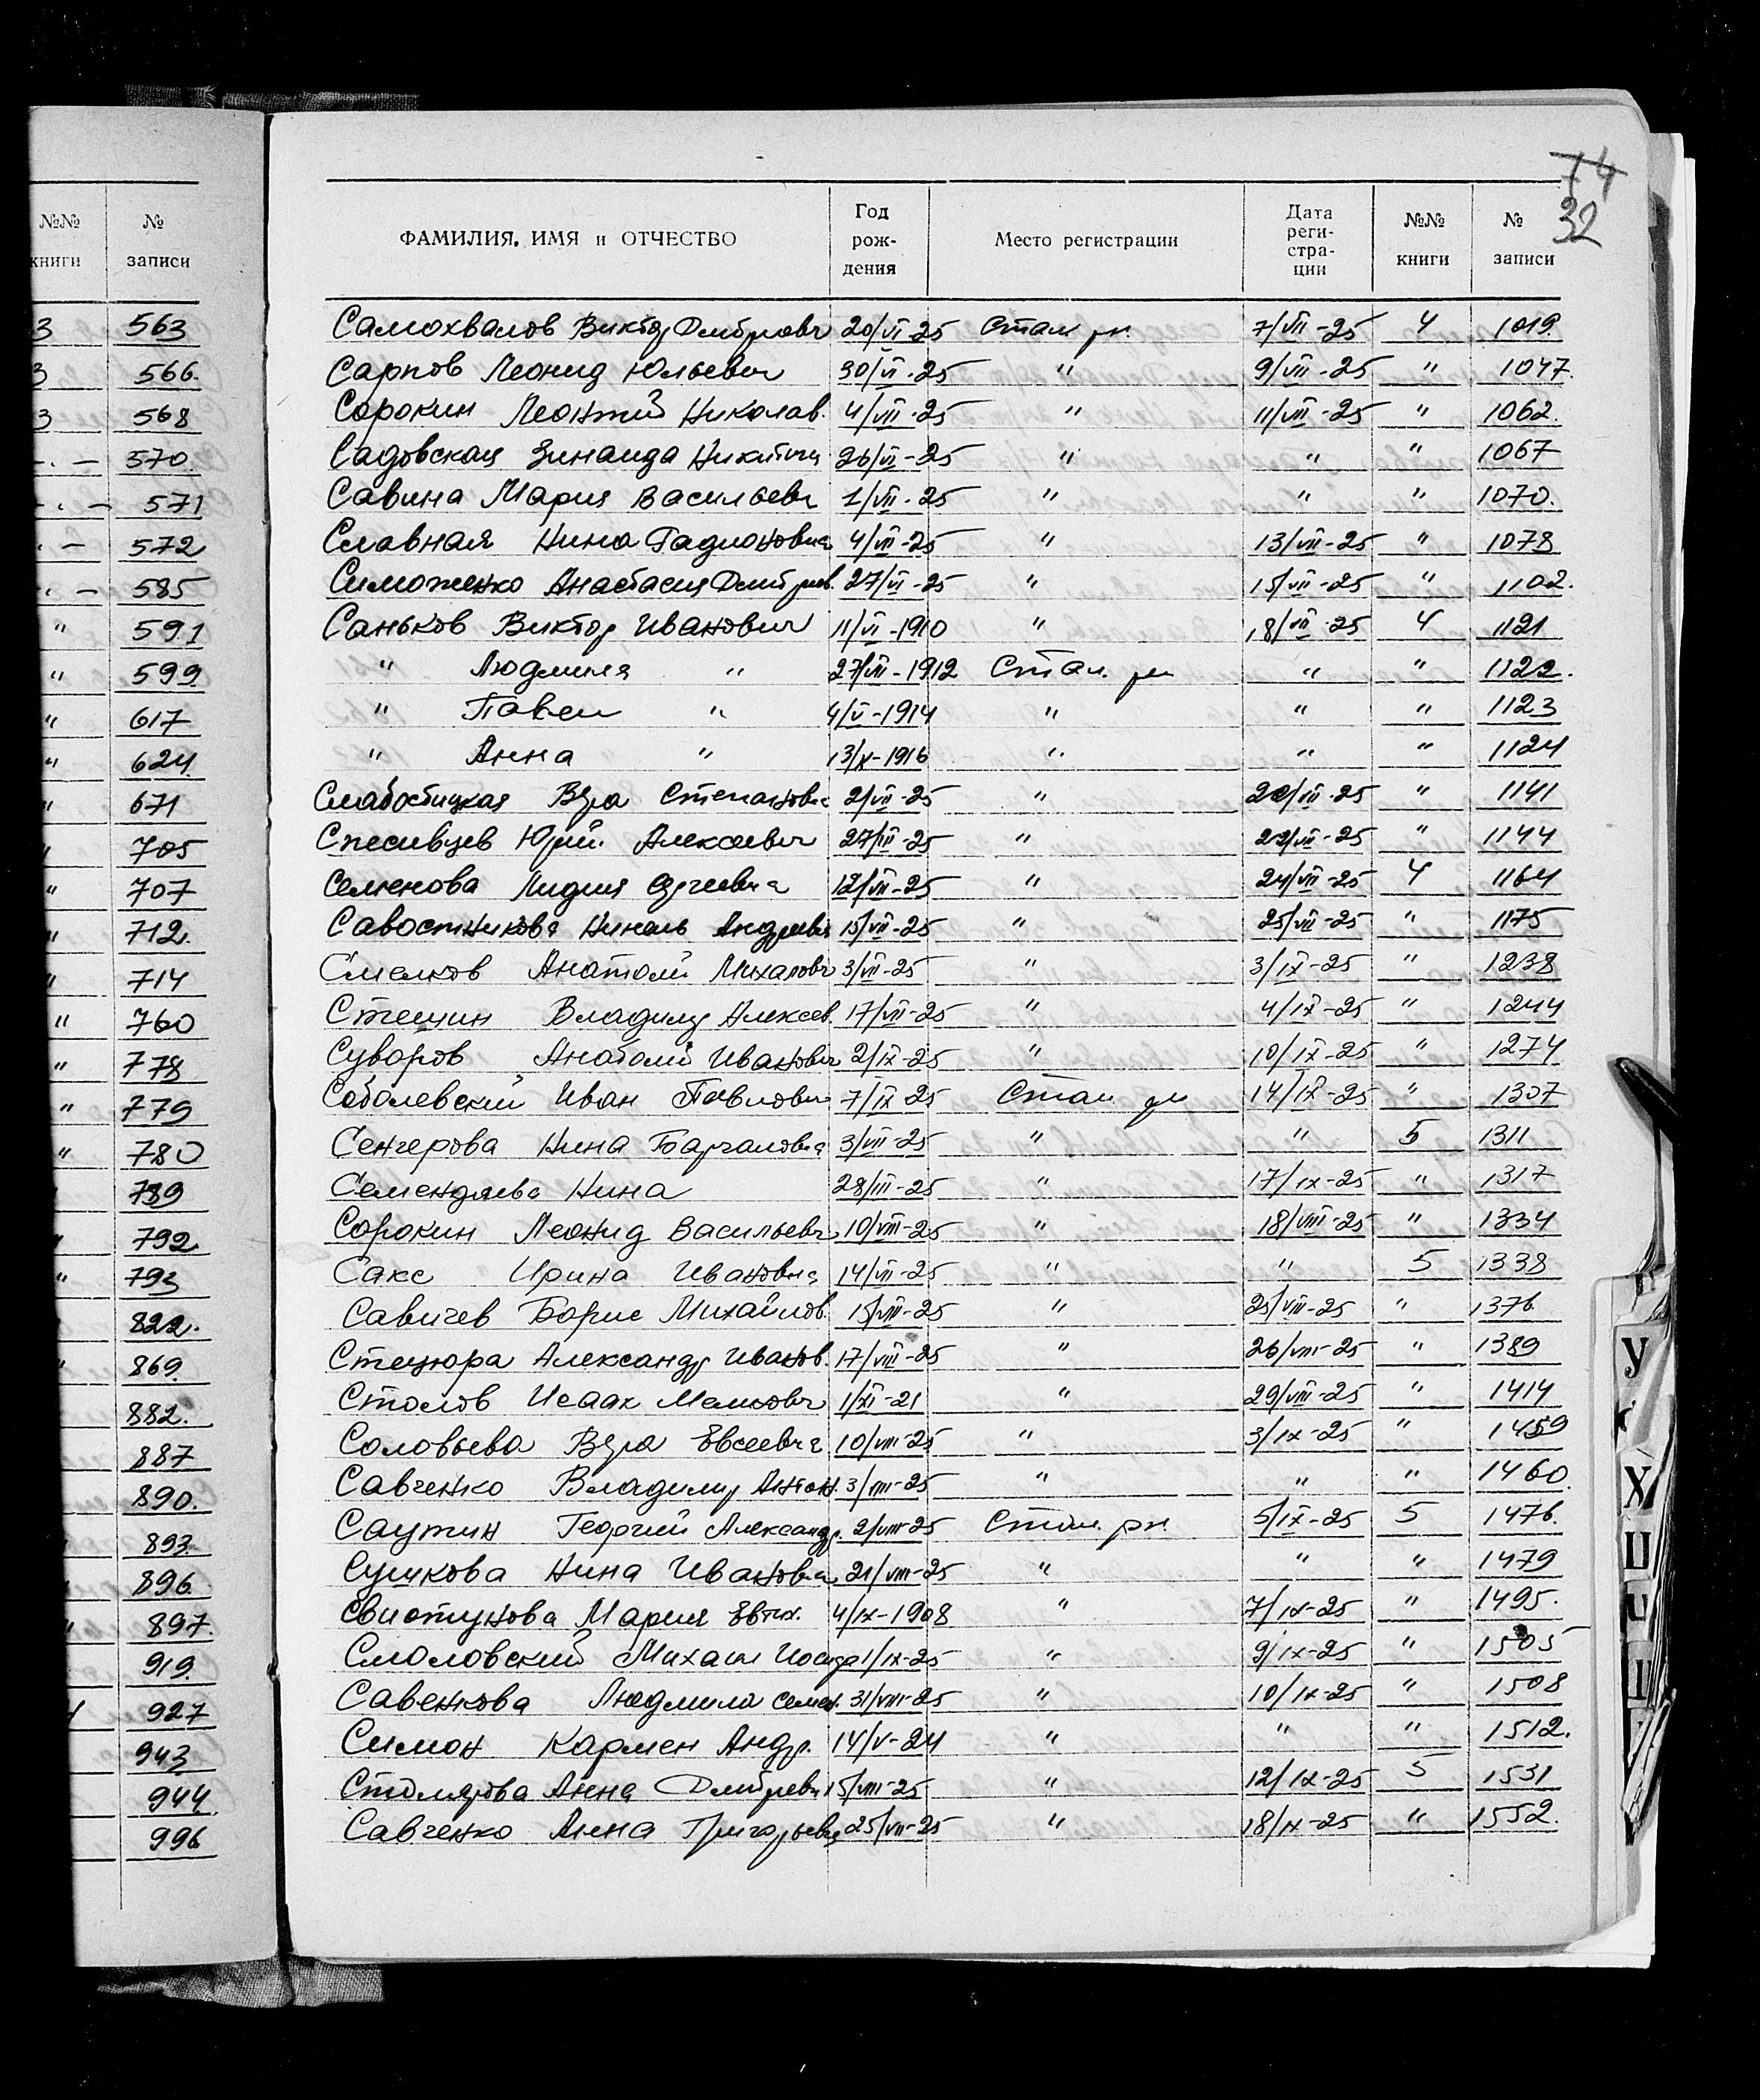 74
32
№№ книги № записи
3 563
3 566.
3 568
- " - 570.
- " - 571
" - 572
" - 585
" 591
" 599.
" 617
" 624.
" 671
" 705
" 707
" 712.
" 714
" 760
" 778
" 779
" 780
789
792.
" 793
822.
" 869.
882.
887
890.
893.
896
" 897.
919.
4 927
943
944
996
ФАМИЛИЯ, ИМЯ и ОТЧЕСТВО Год рож- дения Место регистрации Дата реги- стра- ции №№ книги № записи
Самохвалов Виктор Дмитрович 20/VI-25 Стал рн. 7/VII-25 4 1019.
Сарпов Леонид Юльевич 30/VI-25 " 9/VII-25 " 1047.
Сорокин Леонтий Николав. 4/VII-25 " 11/VII-25 " 1062.
Садовская Зинаида Никитич 26/VI-25 " " " 1067
Савина Мария Васильевн 1/VII-25 " " " 1070.
Славная Нина Радионовна 4/VII-25 " 13/VII-25 " 1078
Симоженко Анастасия Дмитриев. 27/VI-25 " 15/VII-25 " 1102.
Саньков Виктор Иванович 11/VI-1910 " 18/VII-25 4 1121
" Людмила " 27/VII-1912 Стал. рн " " 1122.
" Павел " 4/V-1914 " " " 1123
" Анна " 13/X-1916 " " " 1124
Слабостицкая Вера Степановна 2/VII-25 " 20/VII-25 " 1141
Спесивцев Юрий Алексеевич 27/III-25 " 22/VII-25 " 1144
Семенова Лидия Сергеевна 12/VII-25 " 24/VII-25 4 1164
Савостникова Нинель Андреевн 15/VII-25 " 25/VII-25 " 1175
Смелков Анатолий Михалович 3/VII-25 " 3/IX-25 " 1238
Стешин Владимир Алексев. 17/VII-25 " 4/IX-25 " 1244
Суворов Анатолий Иванович 2/IX-25 " 10/IX-25 " 1274
Соболевский Иван Павлович 7/IX-25 Стал рн 14/IX-25 " 1307
Сенгерова Нина 3/VII-25 " " 5 1311
Семендяева Нина 28/III-25 " 17/IX-25 " 1317
Сорокин Леонид Васильевич 10/VIII-25 " 18/VIII-25 " 1334
Сакс Ирина Ивановна 14/VII-25 " " 5 1338
Савичев Борис Михайлов. 15/VIII-25 " 25/VIII-25 " 1376.
Стецюра Александр Иванов. 17/VIII-25 " 26/VIII-25 " 1389
Столов Исаак 1/XI-21 " 29/VIII-25 " 1414
Соловьева Вера Евсеевна 10/VIII-25 " 3/IX-25 " 1459
Савченко Владимир Антон. 3/VIII-25 " " " 1460.
Саутин Георгий Александр. 2/VIII-25 Стал. рн. 5/IX-25 5 1476.
Сушкова Нина Ивановна 21/VIII-25 " " " 1479
Свистунова Мария Евтих. 4/IX-1908 " 7/IX-25 " 1495.
Смоловский Михаил Иосиф 1/IX-25 " 9/IX-25 " 1505
Савенкова Людмила Семен. 31/VIII-25 " 10/IX-25 " 1508
Симон Кармен Андр. 14/V-24 " " " 1512.
Столярова Анна Дмитревн 15/VIII-25 " 12/IX-25 5 1531
Савченко Анна Григорьевн 25/VII-25 " 18/IX-25 " 1552.
У
Х